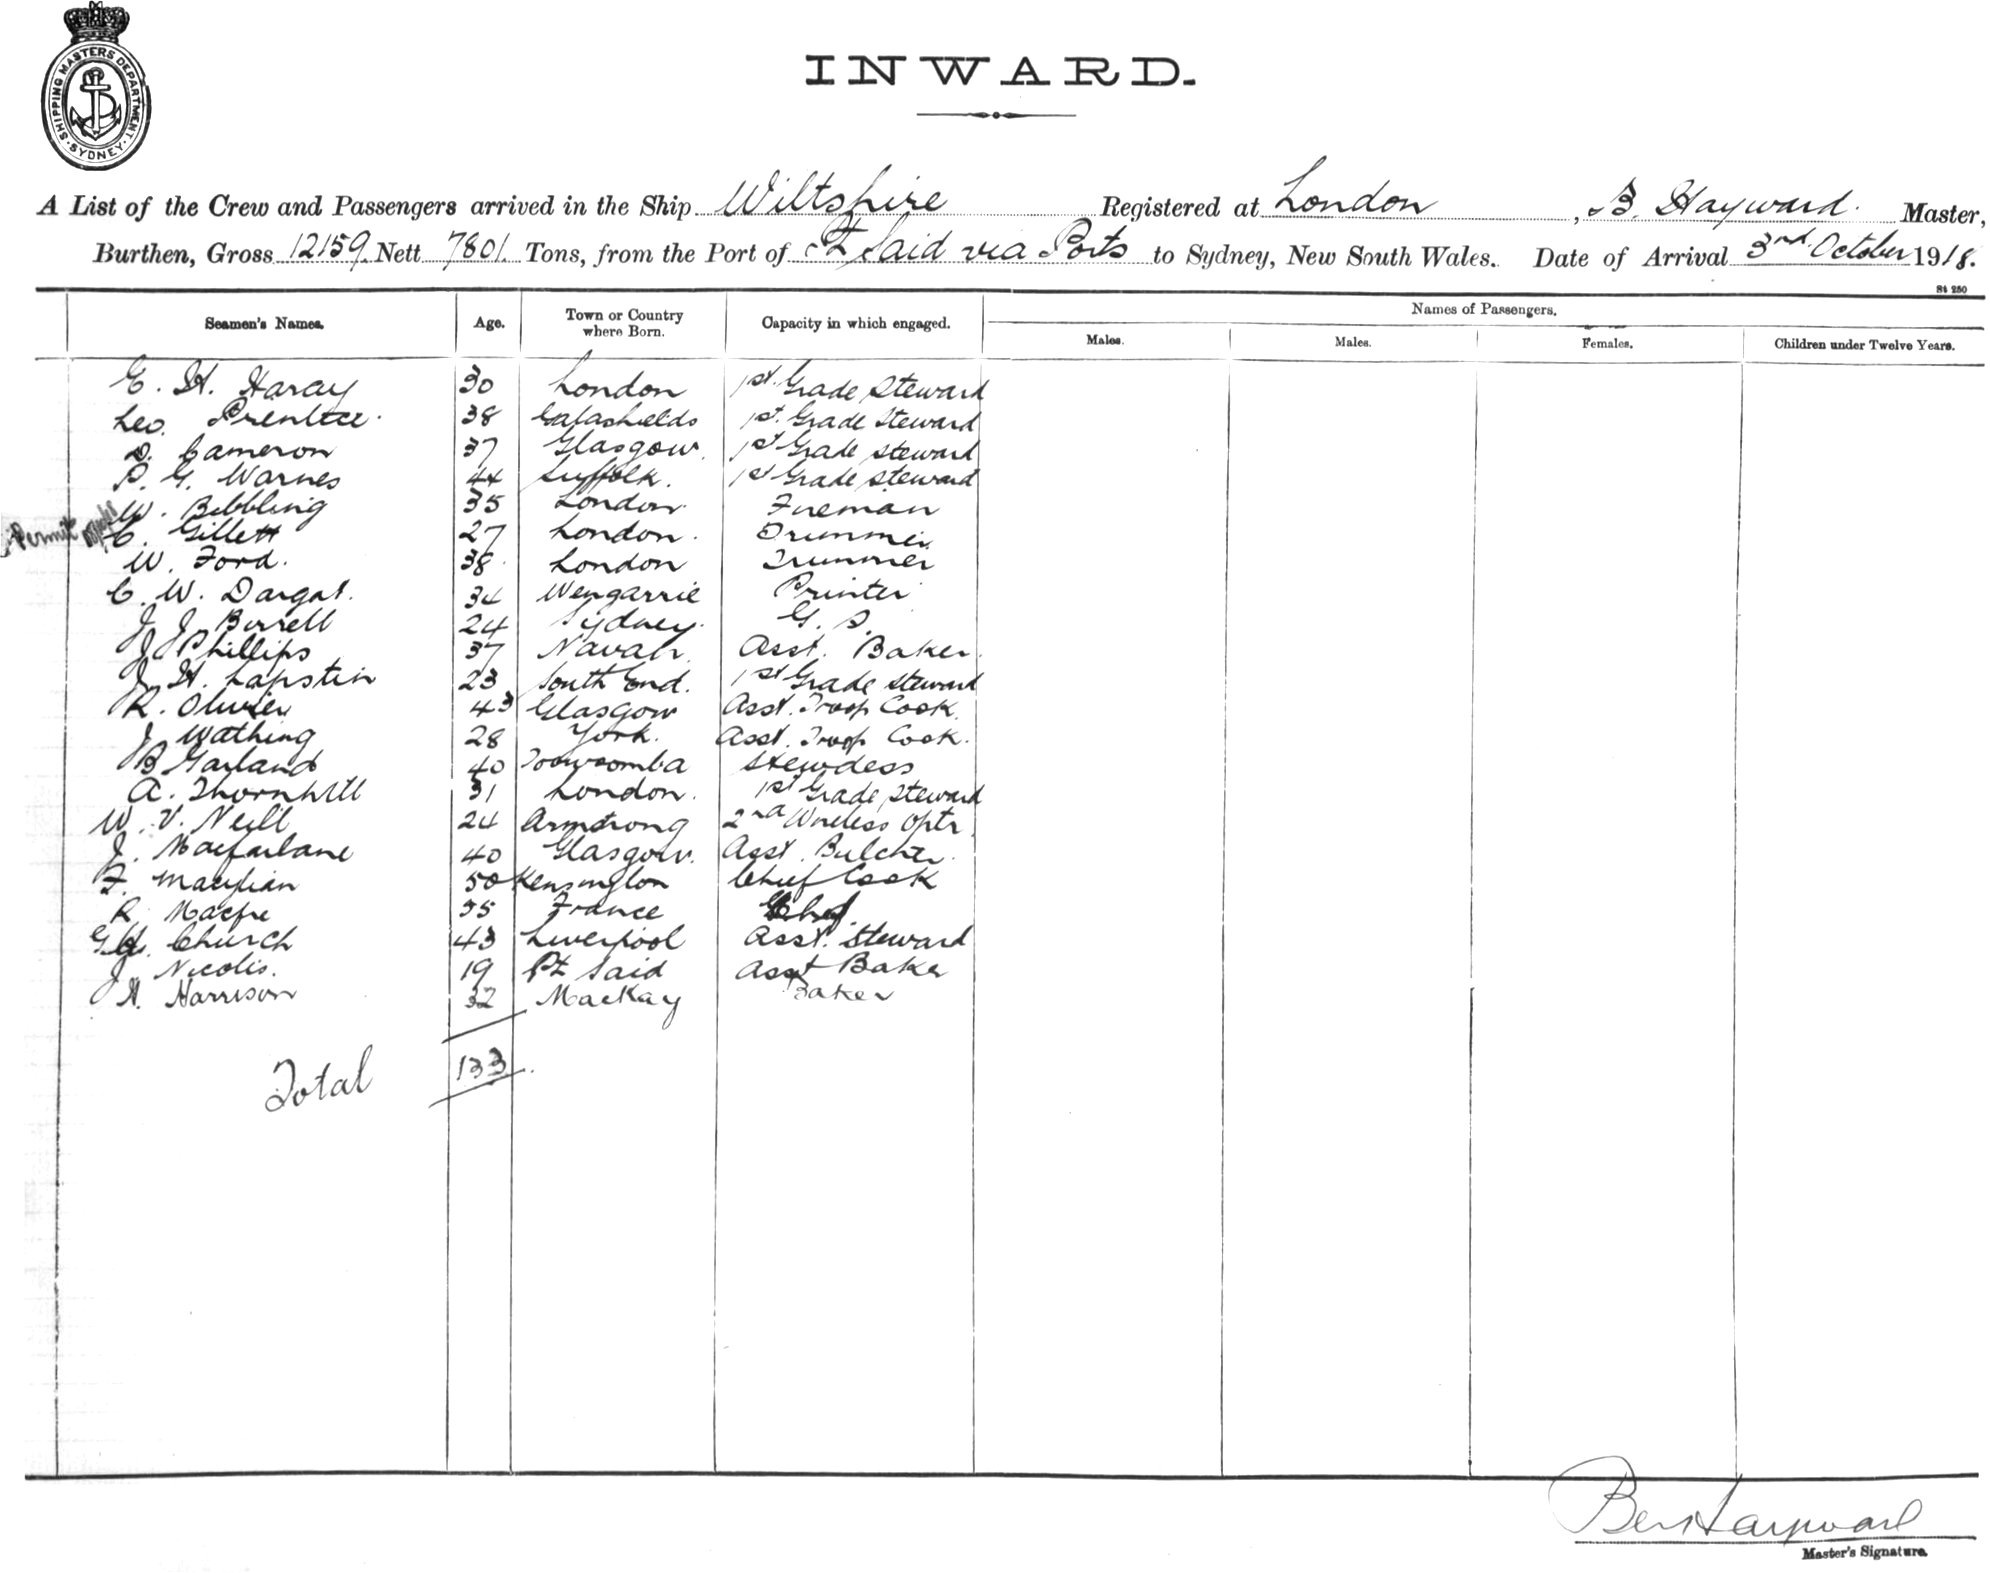 SHIPPING MASTERS DEPARTMENT · SYDNEY ·
INWARD.
A List of the Crew and Passengers arrived in the Ship Wiltshire Registered at London, B. Hayward. Master,
Burthen, Gross 12159. Nett 7801. Tons, from the Port of Pt Said via Ports to Sydney, New South Wales. Date of Arrival 3rd October 1918.
St 250
Seamen's Names. Age. Town or Country where Born. Capacity in which engaged. Names of Passengers.
Males. Males. Females. Children under Twelve Years.
E. H. 30 London 1st. Grade Steward
Leo. Prentice. 38 Galashields 1st. Grade Steward
D. Cameron 37 Glasgow. 1st Grade steward
P. G. Warnes 44 Suffolk. 1st Grade steward
W. Bebbling 35 London Fireman
Permit C. Gillett 27 London. Drummer
W. Ford. 38. London Trimmer
C. W. Dargat. 34 Wengarrie Printer
J J Burrell 24 Sydney. G. S.
J Phillips 37 Navan. Asst. Baker.
J H. Lapstin 23 South End. 1st Grade steward
R. Olivier 43 Glasgow Asst. Troop Cook.
J Wathing 28 York. Asst. Troop Cook.
B Garland 40 Toowoomba Stewdess
A. Thornhill 31 London. 1st Grade, Steward
W. V. Neill 24 Armstrong 2nd Wireless Optr.
J. Macfarlane 40 Glasgow. Asst. Butcher.
F. 50 Kensington Chief Cook
R. Macfie 35 France Chef.
G H. Church 43 Liverpool Asst. Steward
J Nicolis. 19 Pt Said Asst Baker
H. Harrison 32 MacKay Baker
Total 133.
Ben Hayward
Master's Signature.